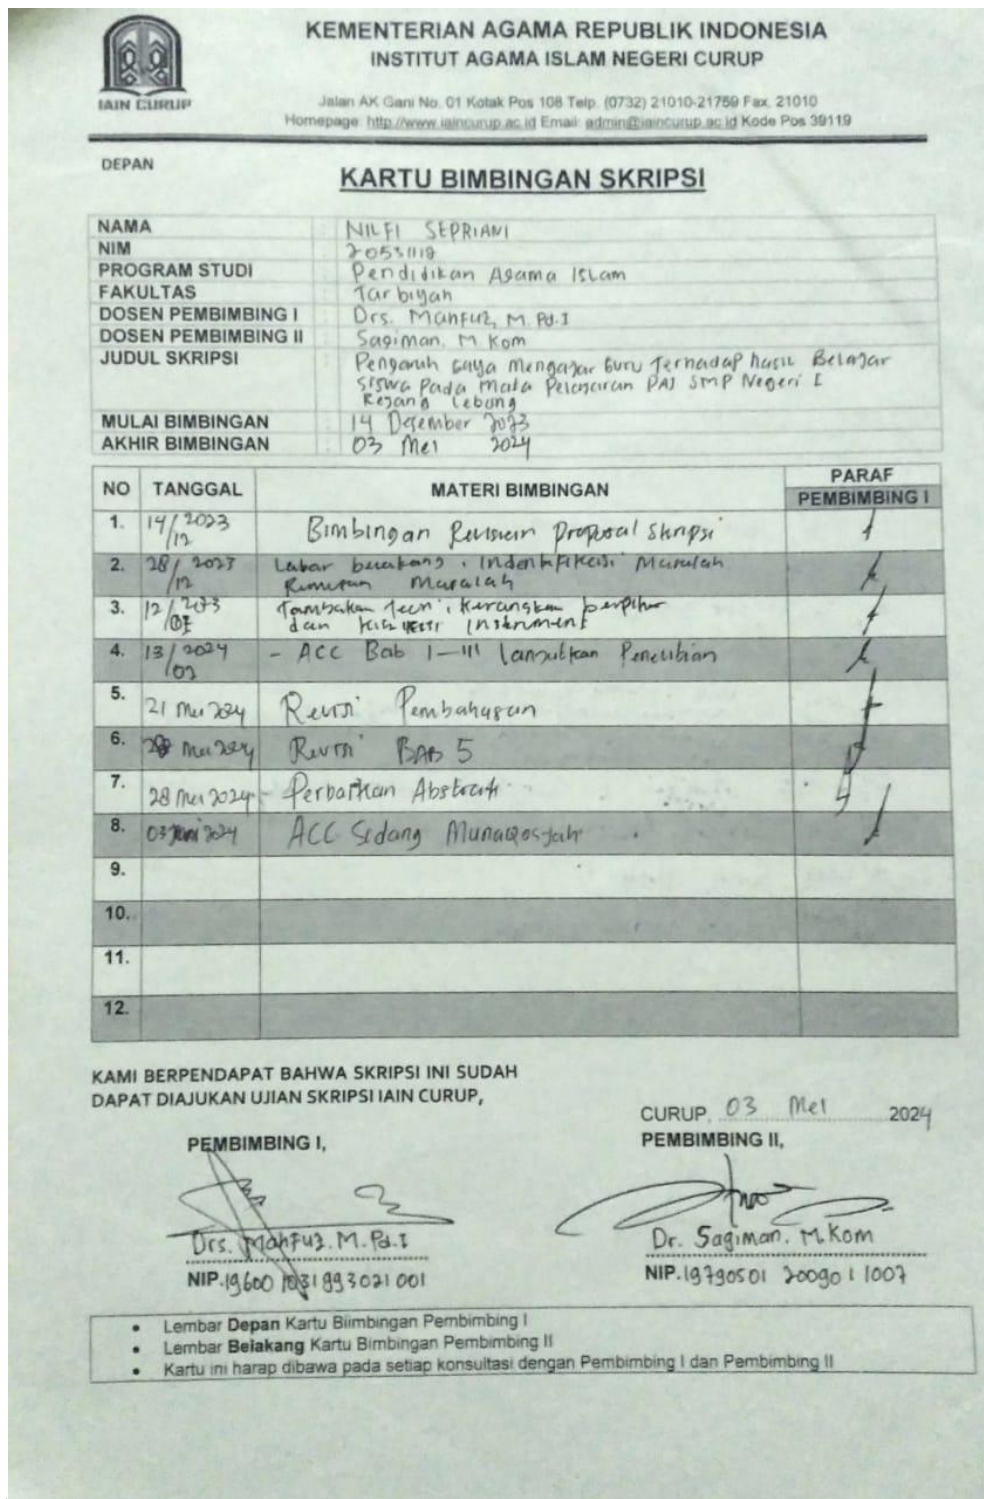 KEMENTERIAN AGAMA REPUBLIK INDONESIA
INSTITUT AGAMA ISLAM NEGERI CURUP
IAIN CURUP
Jalan AK Gani No. 01 Kotak Pos 108 Telp. (0732) 21010-21759 Fax. 21010
Homepage: http://www.iaincurup.ac.id Email: admin@iaincurup.ac.id Kode Pos 39119
DEPAN
KARTU BIMBINGAN SKRIPSI
NAMA : NILFI SEPRIANI
NIM : 20531119
PROGRAM STUDI : Pendidikan Agama Islam
FAKULTAS : Tarbiyah
DOSEN PEMBIMBING I : Drs. Mahfuz, M.Pd.I
DOSEN PEMBIMBING II : Sagiman, M.Kom
JUDUL SKRIPSI : Pengaruh Gaya Mengajar Guru Terhadap hasil Belajar
Siswa Pada Mata Pelajaran PAI SMP Negeri I
Rejang Lebong
MULAI BIMBINGAN : 14 Desember 2023
AKHIR BIMBINGAN : 03 Mei 2024
NO TANGGAL MATERI BIMBINGAN PARAF
PEMBIMBING I
1. 14/12 2023 Bimbingan Proposal Skripsi
2. 28/12 2023 Latar belakang, Indentifikasi Masalah
Rumusan Masalah
3. 12/ Tambakan Teori, Kerangka berpikir
dan kisi kisi Instrument
4. 13/ 2024 - ACC Bab I-III lanjutkan Penelitian
5. 21 Mei 2024 Revisi Pembahasan
6. 28 Mei 2024 Revisi BAB 5
7. 28 Mei 2024 - Perbaikan Abstrak
8. 03 Juni 2024 ACC Sidang Munaqosyah
9.
10.
11.
12.
KAMI BERPENDAPAT BAHWA SKRIPSI INI SUDAH
DAPAT DIAJUKAN UJIAN SKRIPSI IAIN CURUP,
CURUP, 03 Mei 2024
PEMBIMBING I, PEMBIMBING II,
Drs. Mahfuz. M.Pd.I Dr. Sagiman. M.Kom
NIP.19600103 1993021 001 NIP.19790501 200901 1007
• Lembar Depan Kartu Biimbingan Pembimbing I
• Lembar Belakang Kartu Bimbingan Pembimbing II
• Kartu ini harap dibawa pada setiap konsultasi dengan Pembimbing I dan Pembimbing II